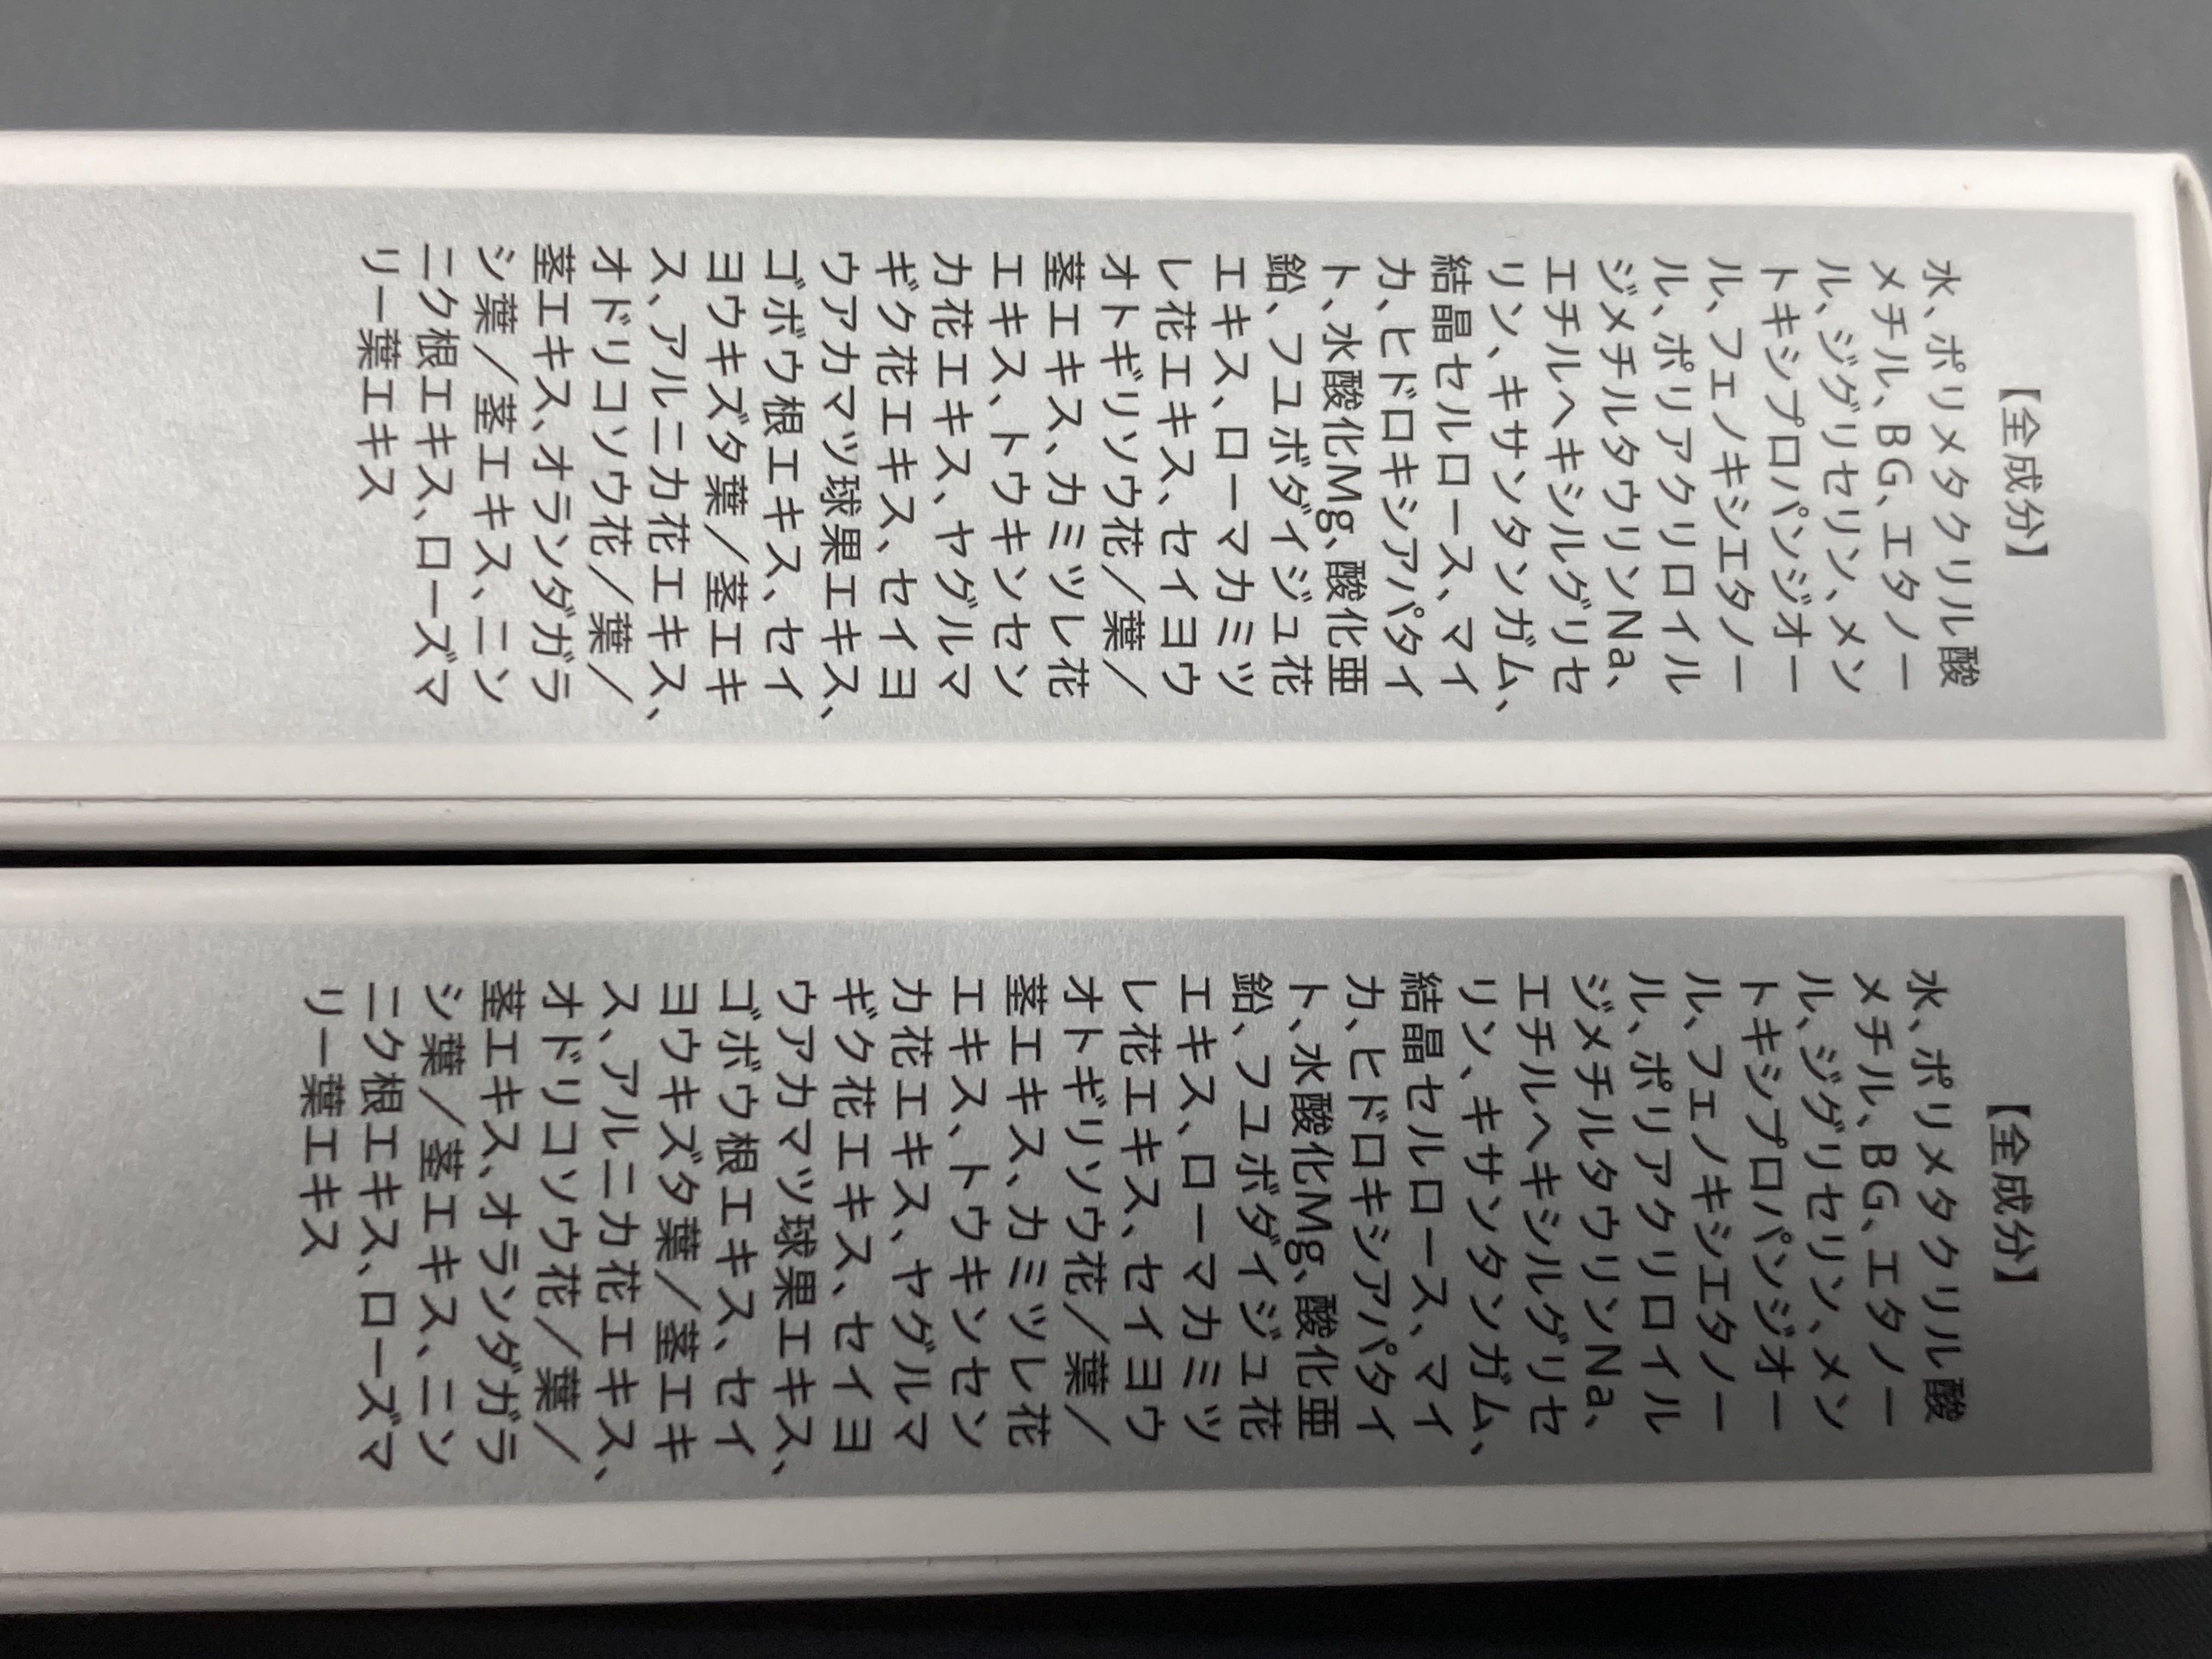 【全成分】
水、ポリメタクリル酸
メチル、BG、エタノー
ル、ジグリセリン、メン
トキシプロパンジオー
ル、フェノキシエタノー
ル、ポリアクリロイル
ジメチルタウリンNa、
エチルヘキシルグリセ
リン、キサンタンガム、
結晶セルロース、マイ
カ、ヒドロキシアパタイ
ト、水酸化Mg、酸化亜
鉛、フユボダイジュ花
エキス、ローマカミツ
レ花エキス、セイヨウ
オトギリソウ花／葉／
茎エキス、カミツレ花
エキス、トウキンセン
カ花エキス、ヤグルマ
ギク花エキス、セイヨ
ウアカマツ球果エキス、
ゴボウ根エキス、セイ
ヨウキズタ葉／茎エキ
ス、アルニカ花エキス、
オドリコソウ花／葉／
茎エキス、オランダガラ
シ葉／茎エキス、ニン
ニク根エキス、ローズマ
リー葉エキス
【全成分】
水、ポリメタクリル酸
メチル、BG、エタノー
ル、ジグリセリン、メン
トキシプロパンジオー
ル、フェノキシエタノー
ル、ポリアクリロイル
ジメチルタウリンNa、
エチルヘキシルグリセ
リン、キサンタンガム、
結晶セルロース、マイ
カ、ヒドロキシアパタイ
ト、水酸化Mg、酸化亜
鉛、フユボダイジュ花
エキス、ローマカミツ
レ花エキス、セイヨウ
オトギリソウ花／葉／
茎エキス、カミツレ花
エキス、トウキンセン
カ花エキス、ヤグルマ
ギク花エキス、セイヨ
ウアカマツ球果エキス、
ゴボウ根エキス、セイ
ヨウキズタ葉／茎エキ
ス、アルニカ花エキス、
オドリコソウ花／葉／
茎エキス、オランダガラ
シ葉／茎エキス、ニン
ニク根エキス、ローズマ
リー葉エキス